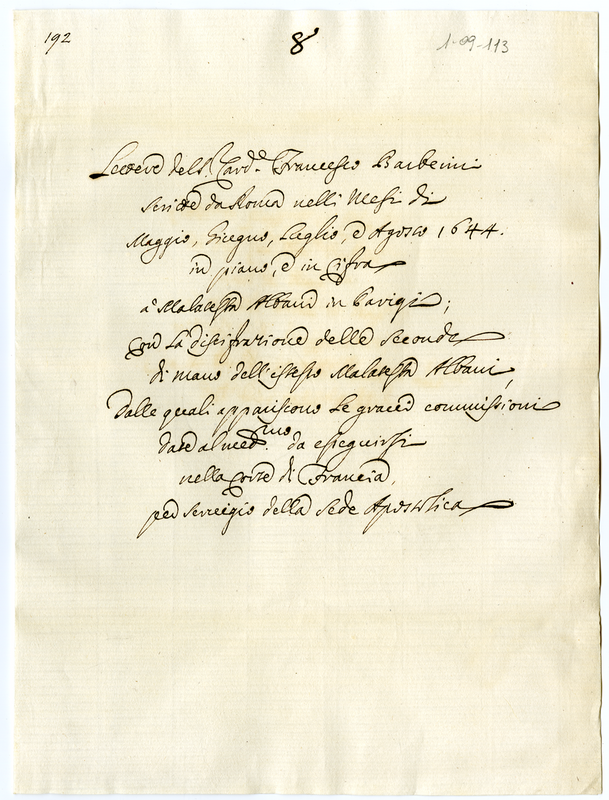 192
8
1-09-113
Lettere del S.r Card.e Francesco Barberini
scritte da Roma nelli Mesi di
Maggio, Giugno, Luglio, e Agosto 1644.
in piano, e in Cifra
a Malatesta Albani in Parigi;
con la discifrazione delle seconde
di mano dell'istesso Malatesta Albani,
dalle quali appariscono le gravi commissioni
date al med.mo da esieguirsi
nella Corte di Francia,
per servigio della Sede Apostolica